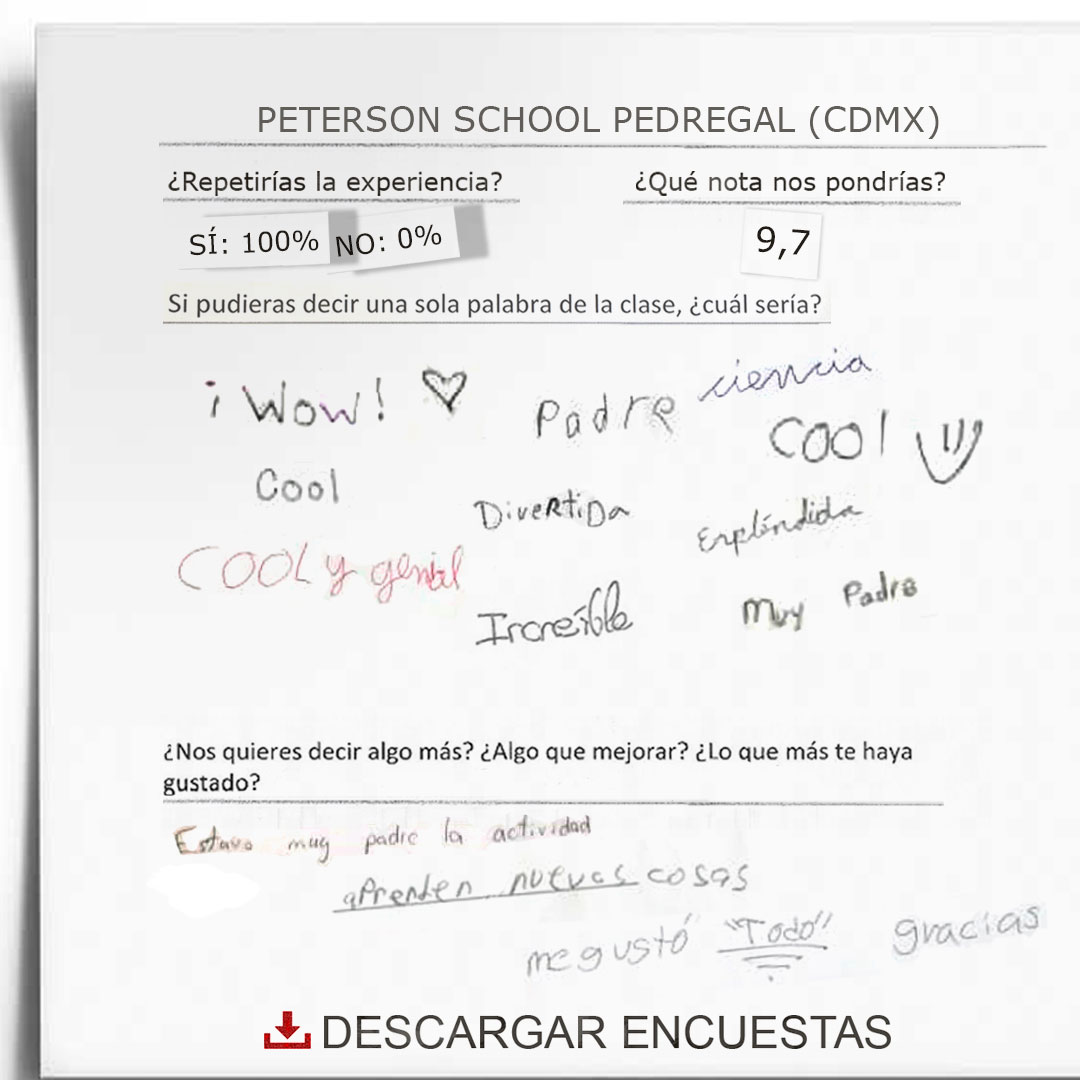 PETERSON SCHOOL PEDREGAL (CDMX)
¿Repetirías la experiencia? ¿Qué nota nos pondrías?
SÍ: 100% NO: 0% 9,7
Si pudieras decir una sola palabra de la clase, ¿cuál sería?
¡Wow! Padre ciencia
Cool
Cool
Divertida
Espléndida
COOL y genial
Increíble
Muy Padre
¿Nos quieres decir algo más? ¿Algo que mejorar? ¿Lo que más te haya
gustado?
Estavo muy padre la actividad
aprenden nuevas cosas
me gustó "Todo" gracias
DESCARGAR ENCUESTAS